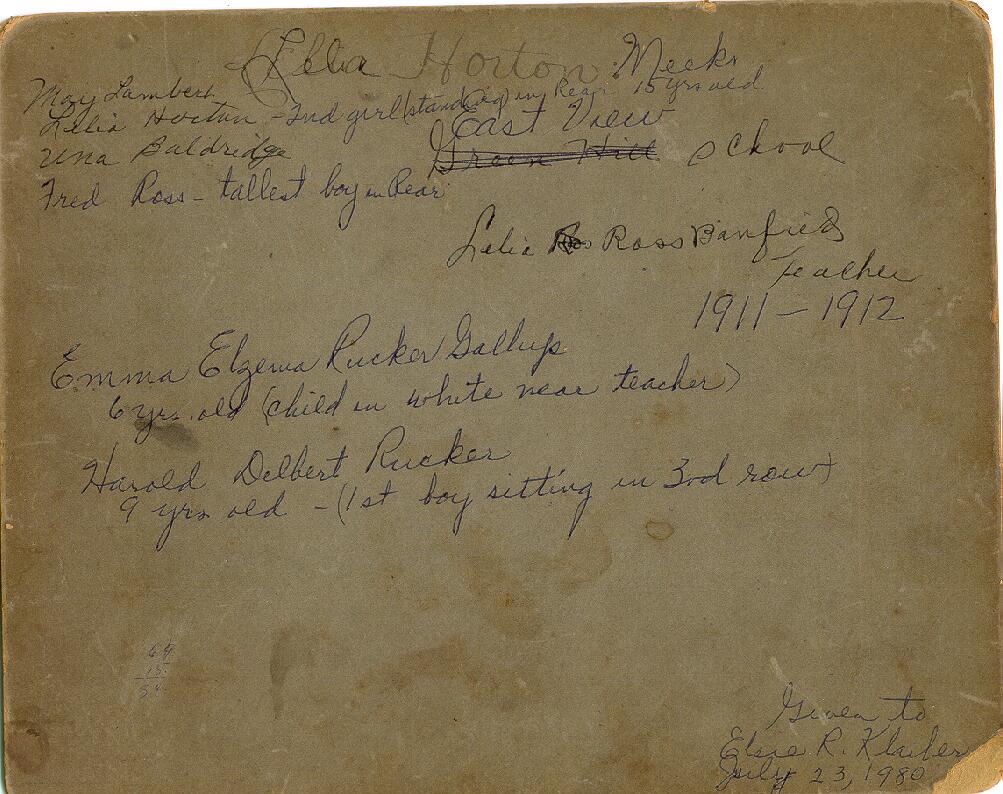 Lelia Horton Meeks
May Lambert
Lelia Horton - 2nd girl (standing) in Rear 15 yrs old
East View
Una Baldridge
Green Hill School
Fred Ross - tallest boy in Rear
Lelia Ross Banfield
Teacher
1911 - 1912
Emma Elzewa Rucker Gallup
6 yrs. old (child in white near teacher)
Harold Delbert Rucker
9 yrs old - (1st boy sitting in 3rd row)
69
15
54
Given to
Elsie R. Klaiber
July 23, 1980